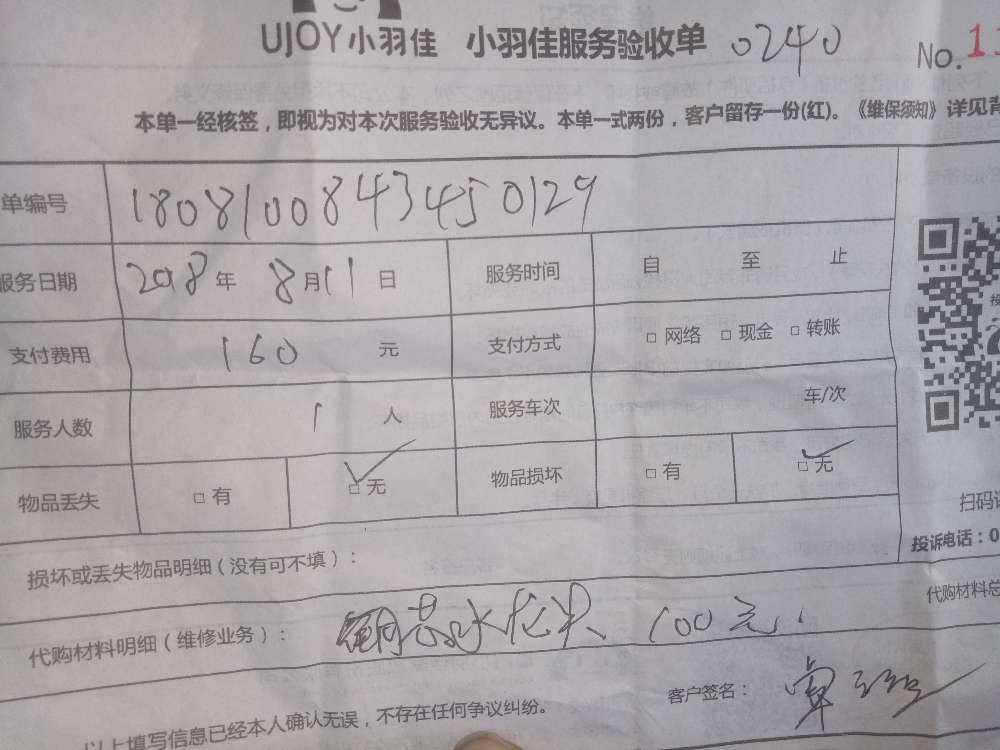 UJOY小羽佳 小羽佳服务验收单 0240 No.1
本单一经核签，即视为对本次服务验收无异议。本单一式两份，客户留存一份(红)。《维保须知》详见背
单编号 1808100843450129
服务日期 2018年 8月11日 服务时间 自 至 止
支付费用 160 元 支付方式 □网络 □现金 □转账
服务人数 1 人 服务车次 车/次
物品丢失 □有 □无 物品损坏 □有 □无
扫码
投诉电话：0
损坏或丢失物品明细（没有可不填）：
代购材料总
代购材料明细（维修业务）： 铜芯水龙头 100元.
客户签名：
以上填写信息已经本人确认无误，不存在任何争议纠纷。